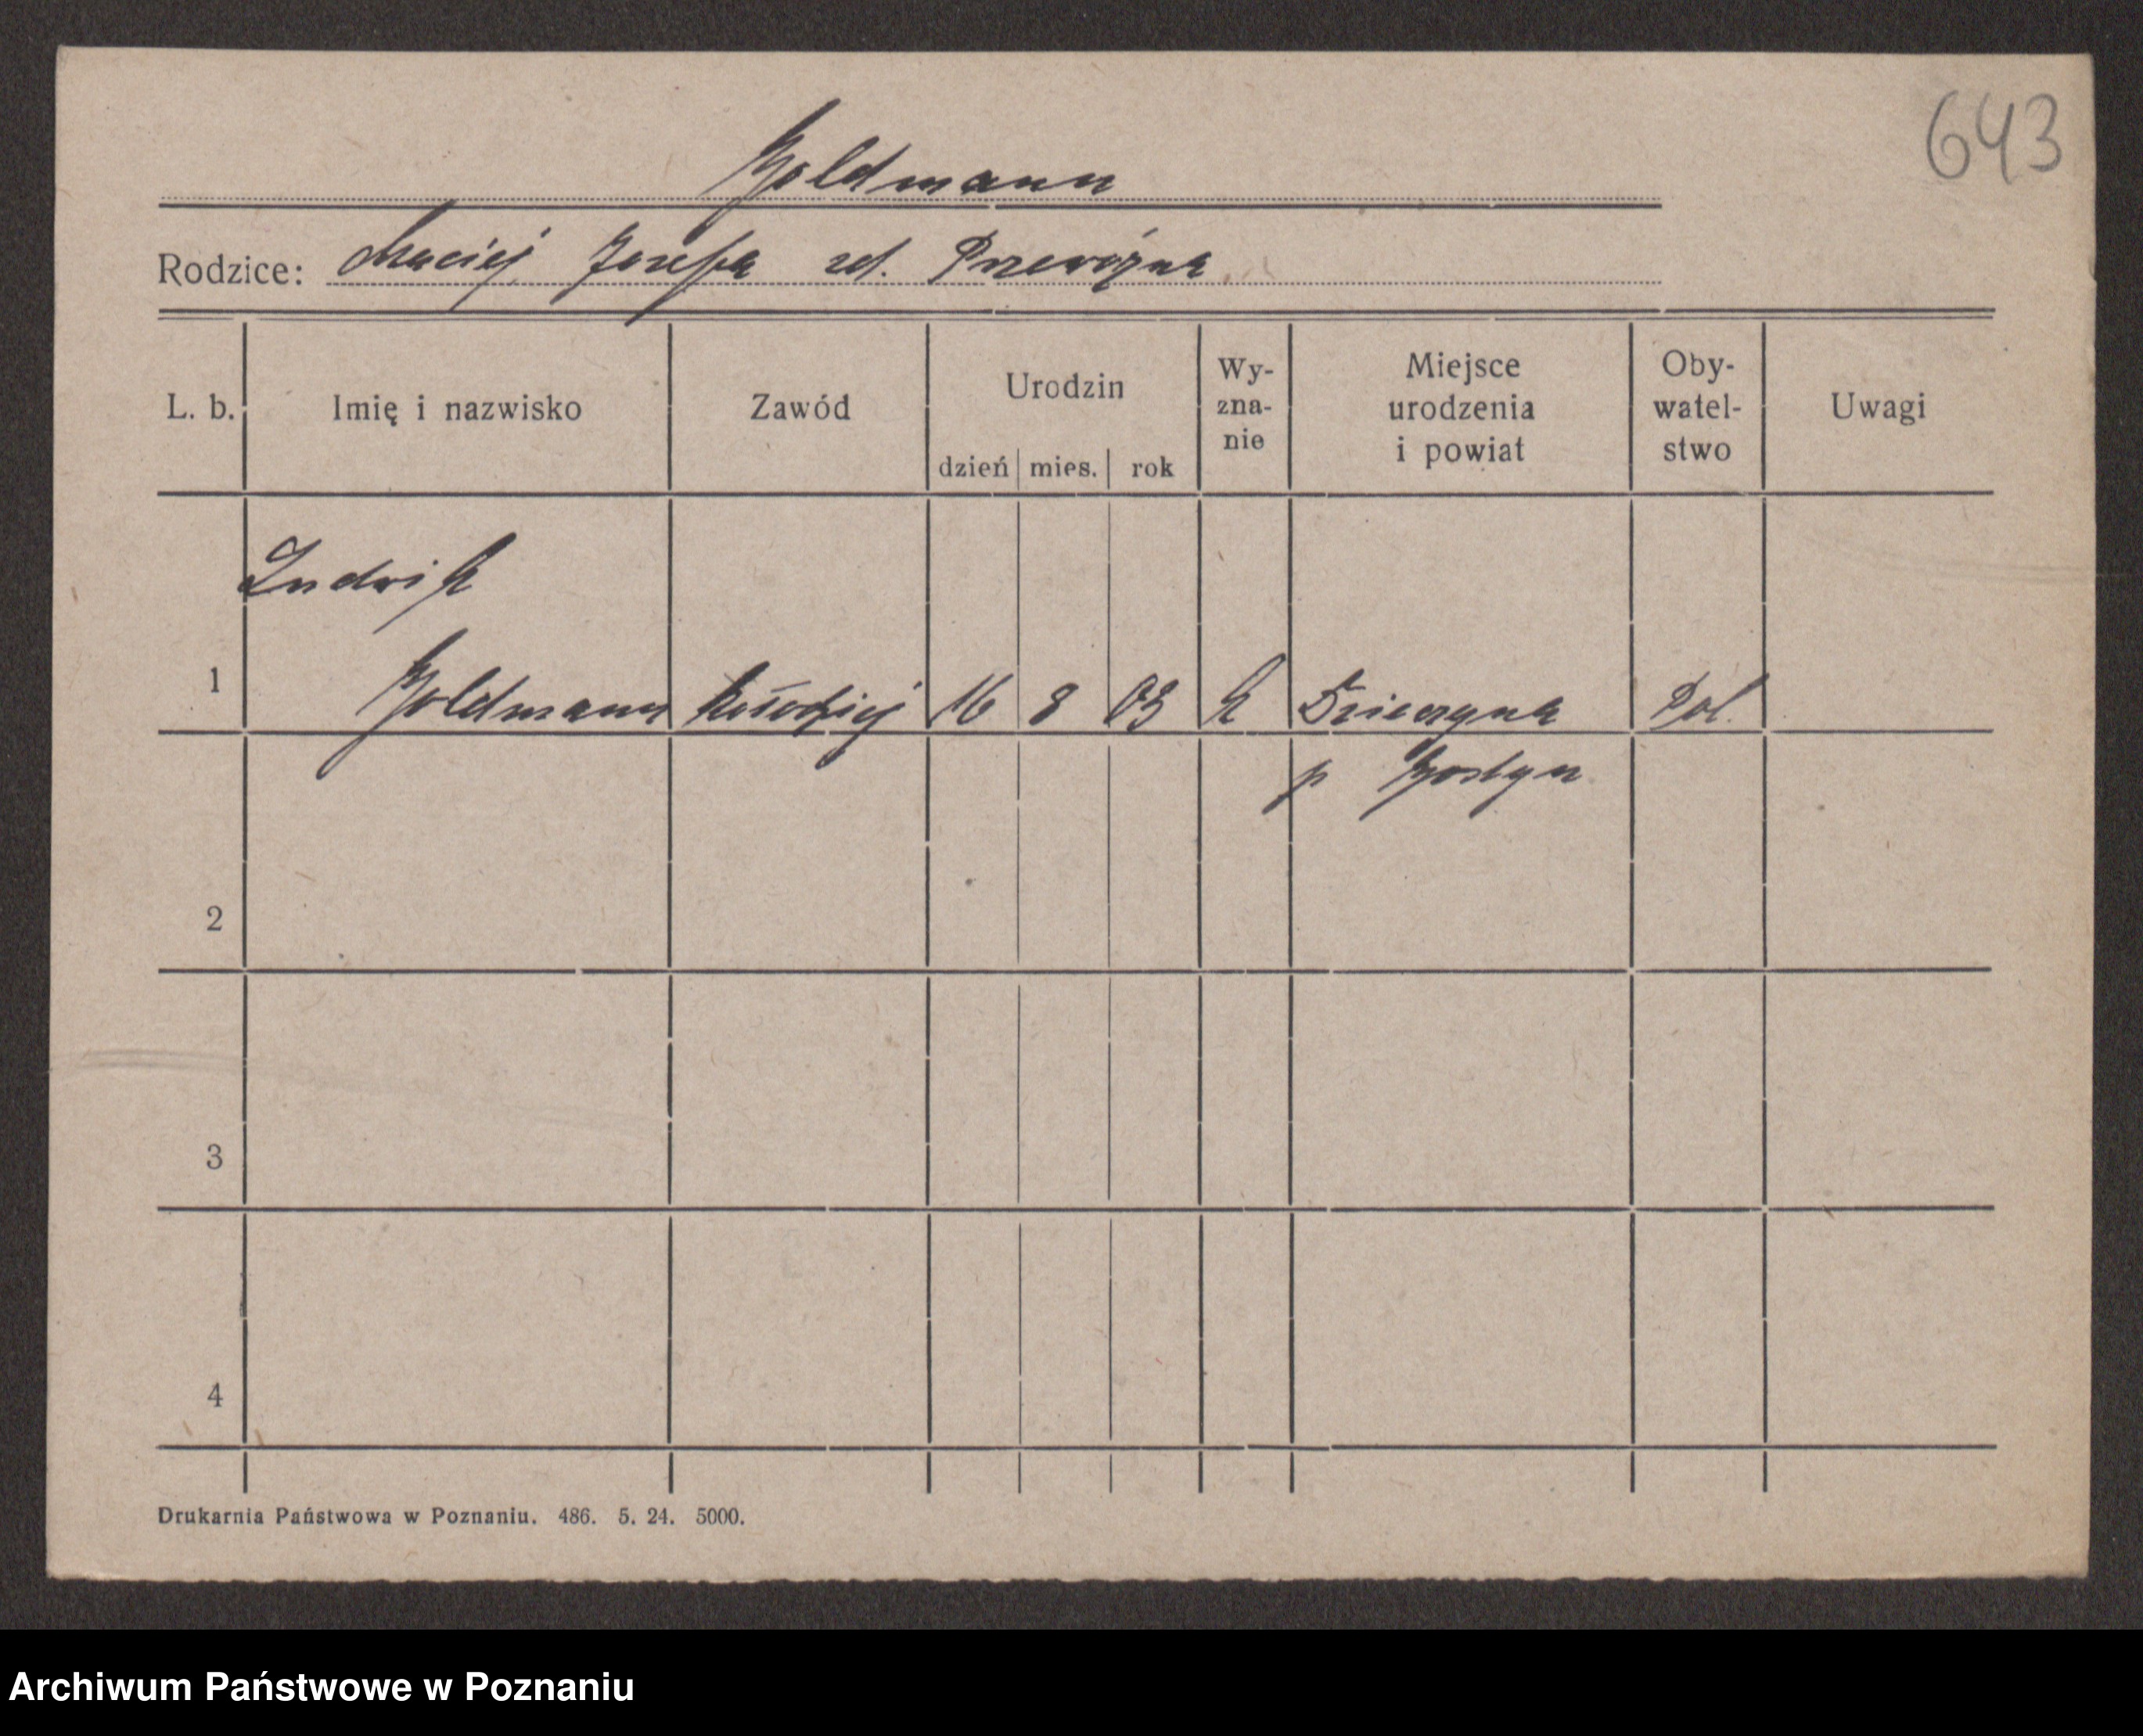 643
Goldmann
Rodzice: Maciej Józefa zd. Przewoźna
L. b. Imię i nazwisko Zawód Urodzin dzień mies. rok Wy-zna-nie Miejsce urodzenia i powiat Oby-watel-stwo Uwagi
Ludwik
1 Goldmann kołodziej 16 8 03 k Dzięczyna Pol.
p Gostyn
2
3
4
Drukarnia Państwowa w Poznaniu. 486. 5. 24. 5000.
Archiwum Państwowe w Poznaniu